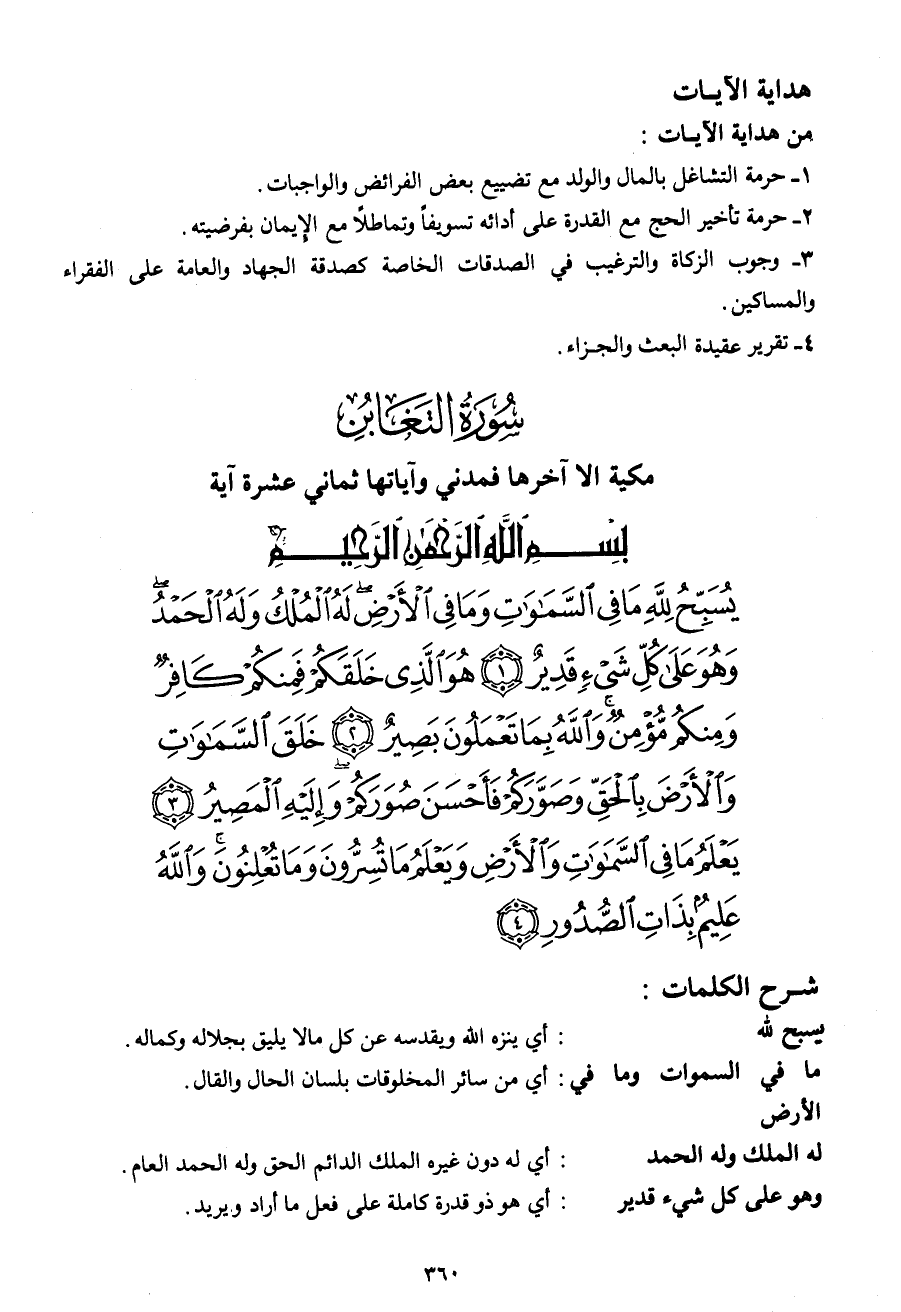 هداية الآيـات
من هداية الآيـات :
١ـ حرمة التشاغل بالمال والولد مع تضييع بعض الفرائض والواجبات .
٢ـ حرمة تأخير الحج مع القدرة على أدائه تسويفاً وتماطلاً مع الإيمان بفرضيته .
٣ـ وجوب الزكاة والترغيب في الصدقات الخاصة كصدقة الجهاد والعامة على الفقراء
والمساكين .
٤ـ تقرير عقيدة البعث والجـزاء .
سُورَةُ التَّغَابُنِ
مكية الا آخرها فمدني وآياتها ثماني عشرة آية
بِسْمِ ٱللَّهِ ٱلرَّحْمَٰنِ ٱلرَّحِيمِ
يُسَبِّحُ لِلَّهِ مَا فِى ٱلسَّمَٰوَٰتِ وَمَا فِى ٱلْأَرْضِۖ لَهُ ٱلْمُلْكُ وَلَهُ ٱلْحَمْدُۖ
وَهُوَ عَلَىٰ كُلِّ شَىْءٍ قَدِيرٌ ١ هُوَ ٱلَّذِى خَلَقَكُمْ فَمِنكُمْ كَافِرٌ
وَمِنكُم مُّؤْمِنٌۚ وَٱللَّهُ بِمَا تَعْمَلُونَ بَصِيرٌ ٢ خَلَقَ ٱلسَّمَٰوَٰتِ
وَٱلْأَرْضَ بِٱلْحَقِّ وَصَوَّرَكُمْ فَأَحْسَنَ صُوَرَكُمْۖ وَإِلَيْهِ ٱلْمَصِيرُ ٣
يَعْلَمُ مَا فِى ٱلسَّمَٰوَٰتِ وَٱلْأَرْضِ وَيَعْلَمُ مَا تُسِرُّونَ وَمَا تُعْلِنُونَۚ وَٱللَّهُ
عَلِيمٌۢ بِذَاتِ ٱلصُّدُورِ ٤
شـرح الكلمات :
يسبح لله : أي ينزه الله ويقدسه عن كل مالا يليق بجلاله وكماله .
ما في السموات وما في : أي من سائر المخلوقات بلسان الحال والقال .
الأرض
له الملك وله الحمد : أي له دون غيره الملك الدائم الحق وله الحمد العام .
وهو على كل شيء قدير : أي هو ذو قدرة كاملة على فعل ما أراد ويريد .
٣٦٠